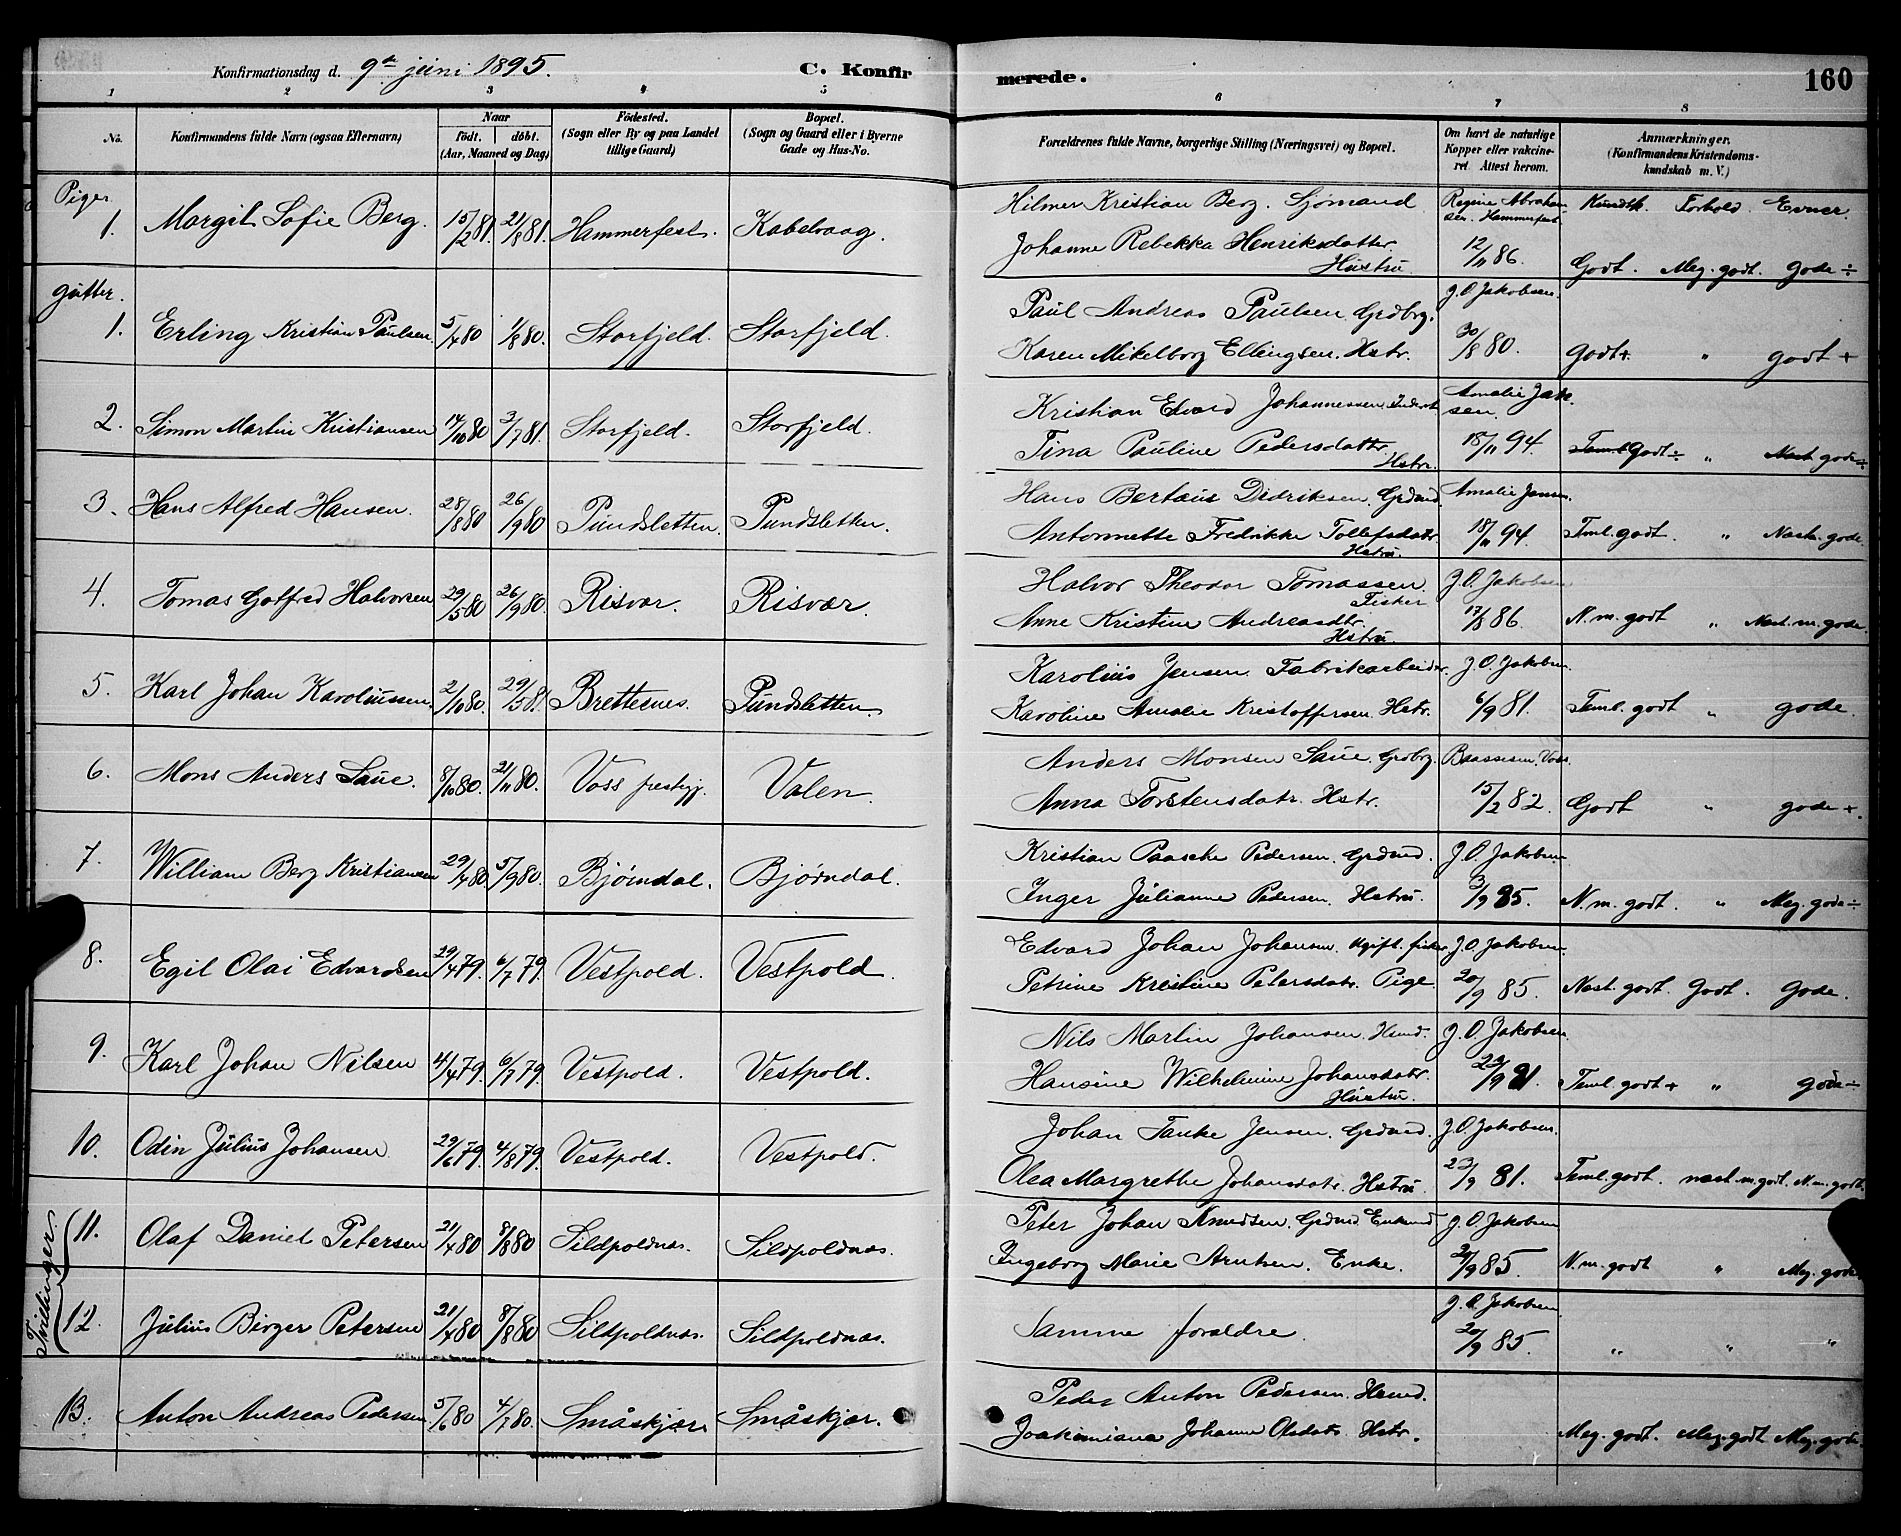 Konfirmationsdag d. 9de juni 1895. C. Konfirmerede. 160
1 2 3 4 5 6 7 8
No. Konfirmandens fulde Navn (ogsaa Efternavn) Naar født. døbt. (Aar, Maaned og Dag) Fødested. (Sogn eller By og paa Landet tillige Gaard) Bopæl. (Sogn og Gaard eller i Byerne Gade og Hus-No. Forældrenes fulde Navne, borgerlige Stilling (Næringsvei) og Bopæl. Om havt de naturlige Kopper eller vakcineret. Attest herom. Anmærkninger. (Konfirmandens Kristendomskundskab m. V.)
Piger
1. Margit Sofie Berg. 15/2 81. 21/8 81. Hammerfest. Kabelvaag. Hilmer Kristian Berg. Sjømand Regine Abrahamsen. Hammerfest Kundsk. Forhold. Evner.
Johanne Rebekka Henriksdatter Hustru 12/11 86. Godt. Meg. godt. Gode ÷
Gutter.
1. Erling Kristian Paulsen 5/4 80 1/8 80. Storfjeld. Storfjeld. Paul Andreas Paulsen. Grdbrg. J. O. Jakobsen.
Karen Mikelborg Ellingsen. Hstr. 30/8 80. Godt+. " godt +
2. Simon Martin Kristiansen 14/10 80 3/7 81. Storfjeld. Storfjeld. Kristian Edvard Johannessen Amalie
Tina Pauline Pedersdattr Hstr. 18/11 94. Godt ÷ " gode ÷
3. Hans Alfred Hansen. 28/8 80 26/9 80 Pundsletten. Pundsletten. Hans Bertæus Didriksen. Grdmd. Amalie Jansen.
Antonnette Fredrikke Tollefsdatr Hstru. 18/11 94. Teml. godt. " Næst. gode.
4. Tomas Gotfred Halvorsen 29/5 80 26/9 80. Risvær. Risvær. Halvor Theodor Tomassen. Fisker J. O. Jakobsen
Anne Kristine Andreasdtr. Hstru. 17/8 86. N. m. godt " Næst. m. gode.
5. Karl Johan Karoliussen 2/10 80. 29/5 81. Brettesnes. Pundsletten. Karolius Jensen Fabrikarbeider. J. O. Jakobsen.
Karoline Amalie Kristoffersen. Hstr. 6/9 81. Teml. godt " gode.
6. Mons Anders Saue. 8/10 80. 21/11 80. Voss prestgj. Valen. Anders Monsen Saue. Grdbrg. Voss.
Anna Torstensdatr. Hstr. 15/2 82. Godt " gode +.
7. William Berg Kristiansen 29/4 80. 5/9 80. Bjørndal. Bjørndal. Kristian Paasche Pedersen. Grdmd. J. O. Jakobsen
Inger Julianne Pedersen. Hstru. 3/9 85. N. m. godt. " Meg. gode ÷
8. Egil Olai Edvardsen 29/4 79. 6/7 79. Vestpold. Vestpold. Edvard Johan Johansen. Ugift. fisker J. O. Jakobsen.
Petrine Kristine Petersdatr. Pige. 20/9 85. Næst. godt. Godt. Gode.
9. Karl Johan Nilsen 4/4 79. 6/7 79. Vestpold. Vestpold. Nils Martin Johansen. Husmd. J. O. Jakobsen
Hansine Wilhelmine Johansdatr. Hustru. 23/9 81. Teml. godt + " gode ÷
10. Odin Julius Johansen. 29/6 79. 4/8 79. Vestpold. Vestpold. Johan Tanke Jensen. Grdmd. J. O. Jakobsen.
Olea Margrethe Johansdatr. Hstru 23/9 81. Teml. godt. næst m. godt. N. m. godt.
Tvillinger
11. Olaf Daniel Petersen 21/4 80 8/8 80 Sildpoldnæs. Sildpoldnæs. Peter Johan Knudsen. Grdmd. Enkemd J. O. Jakobsen
Ingeborg Marie Arntsen. Enke. 20/9 85. N. m. godt " Meg. gode
12. Julius Birger Petersen 21/4 80 8/8 80 Sildpoldnæs. Sildpoldnæs. Samme forældre. J. O. Jakobsen 20/9 85. " " "
13. Anton Andreas Pedersen 5/6 80 4/7 80. Småskjær Småskjær. Peder Anton Pedersen. Husmd.
Joakimiana Johanne Olsdatr. Hstr. Meg. godt. Meg. godt Meg. gode.